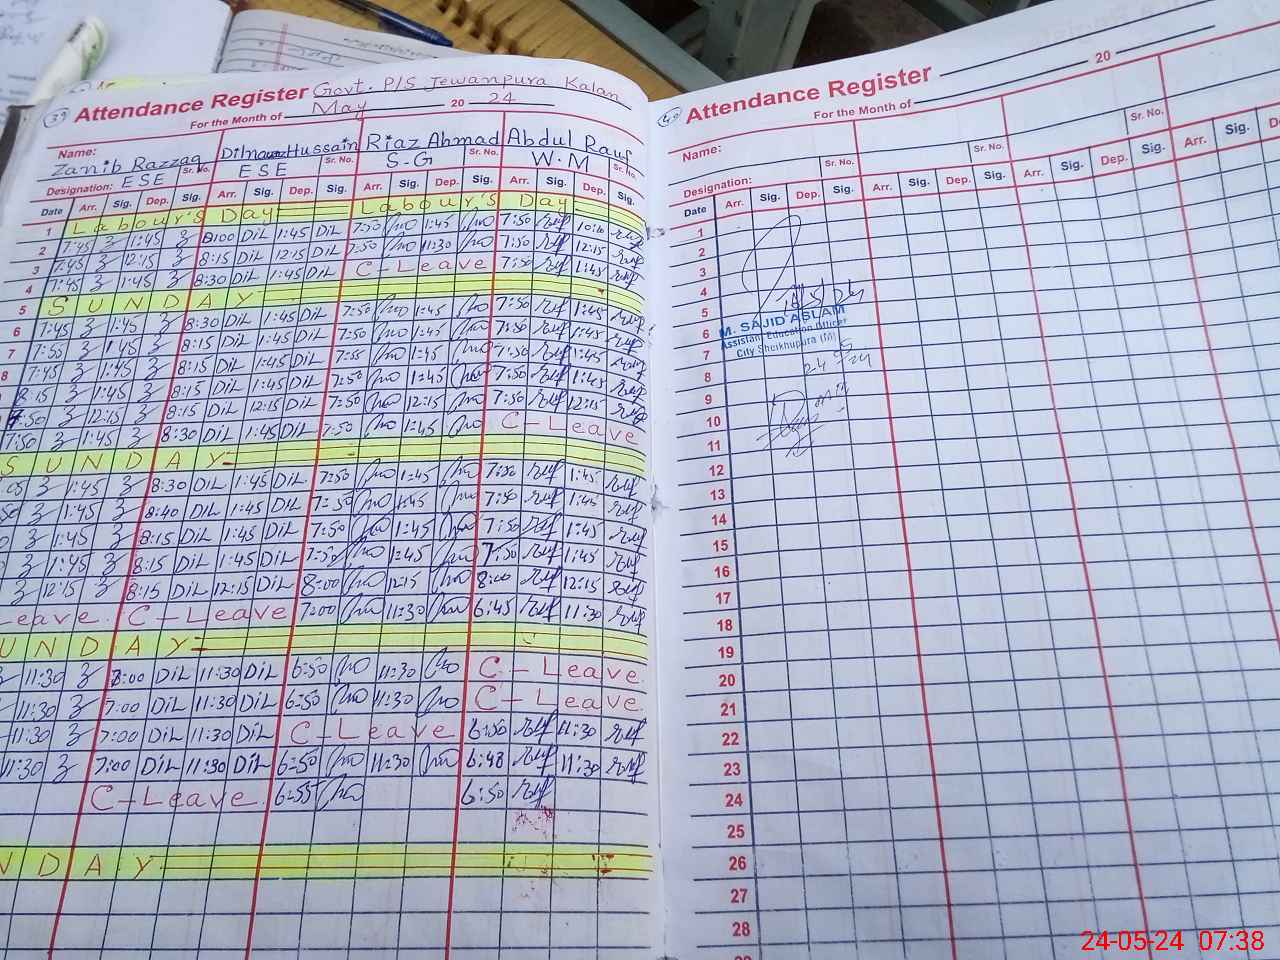 39 Attendance Register Govt. P/S Jewanpura Kalan
For the Month of May 20 24
Name: Zanib Razzaq Dilnawaz Hussain Riaz Ahmad Abdul Rauf
Designation: ESE Sr. No. ESE Sr. No. S.G Sr. No. W.M Sr. No.
Date Arr. Sig. Dep. Sig. Arr. Sig. Dep. Sig. Arr. Sig. Dep. Sig. Arr. Sig. Dep. Sig.
1 Labour's Day Labour's Day
2 7:45 1:45 8:00 DiL 1:45 DiL 7:50 1:45 7:50 10:10
3 7:45 12:15 8:15 DiL 12:15 DiL 7:50 11:30 7:50 12:15
4 7:45 1:45 8:30 DiL 1:45 DiL C-Leave 7:50 1:45
5 SUNDAY
6 7:45 1:45 8:30 DiL 1:45 DiL 7:50 1:45 7:50 1:45
7 7:55 1:45 8:15 DiL 1:45 DiL 7:50 1:45 7:50 1:45
8 7:45 1:45 8:15 DiL 1:45 DiL 7:55 1:45 7:50 1:45
8:15 1:45 8:15 DiL 1:45 DiL 7:50 1:45 7:50 1:45
7:50 12:15 8:15 DiL 12:15 DiL 7:50 12:15 7:50 12:15
7:50 1:45 8:30 DiL 1:45 DiL 7:50 1:45 C-Leave
SUNDAY
05 1:45 8:30 DiL 1:45 DiL 7:50 1:45 7:50 1:45
50 1:45 8:40 DiL 1:45 DiL 7:50 1:45 7:50 1:45
1:45 8:15 DiL 1:45 DiL 7:50 1:45 7:50 1:45
1:45 8:15 DiL 1:45 DiL 7:50 1:45 7:50 1:45
12:15 8:15 DiL 12:15 DiL 8:00 12:15 8:00 12:15
Leave C-Leave 7:00 11:30 6:45 11:30
UNDAY
11:30 7:00 DiL 11:30 DiL 6:50 11:30 C-Leave
11:30 7:00 DiL 11:30 DiL 6:50 11:30 C-Leave
11:30 7:00 DiL 11:30 DiL C-Leave 6:50 11:30
11:30 7:00 DiL 11:30 DiL 6:50 11:30 6:48 11:30
C-Leave 6:55 6:50
NDAY
40 Attendance Register 20
For the Month of
Name:
Designation: Sr. No. Sr. No. Sr. No.
Date Arr. Sig. Dep. Sig. Arr. Sig. Dep. Sig. Arr. Sig. Dep. Sig. Arr. Sig.
1
2
3
4
5
6 M. SAJID ASLAM
7 Assistant Education Officer
City Sheikhupura (M)
8
9
10
11
12
13
14
15
16
17
18
19
20
21
22
23
24
25
26
27
28
24-05-24 07:38